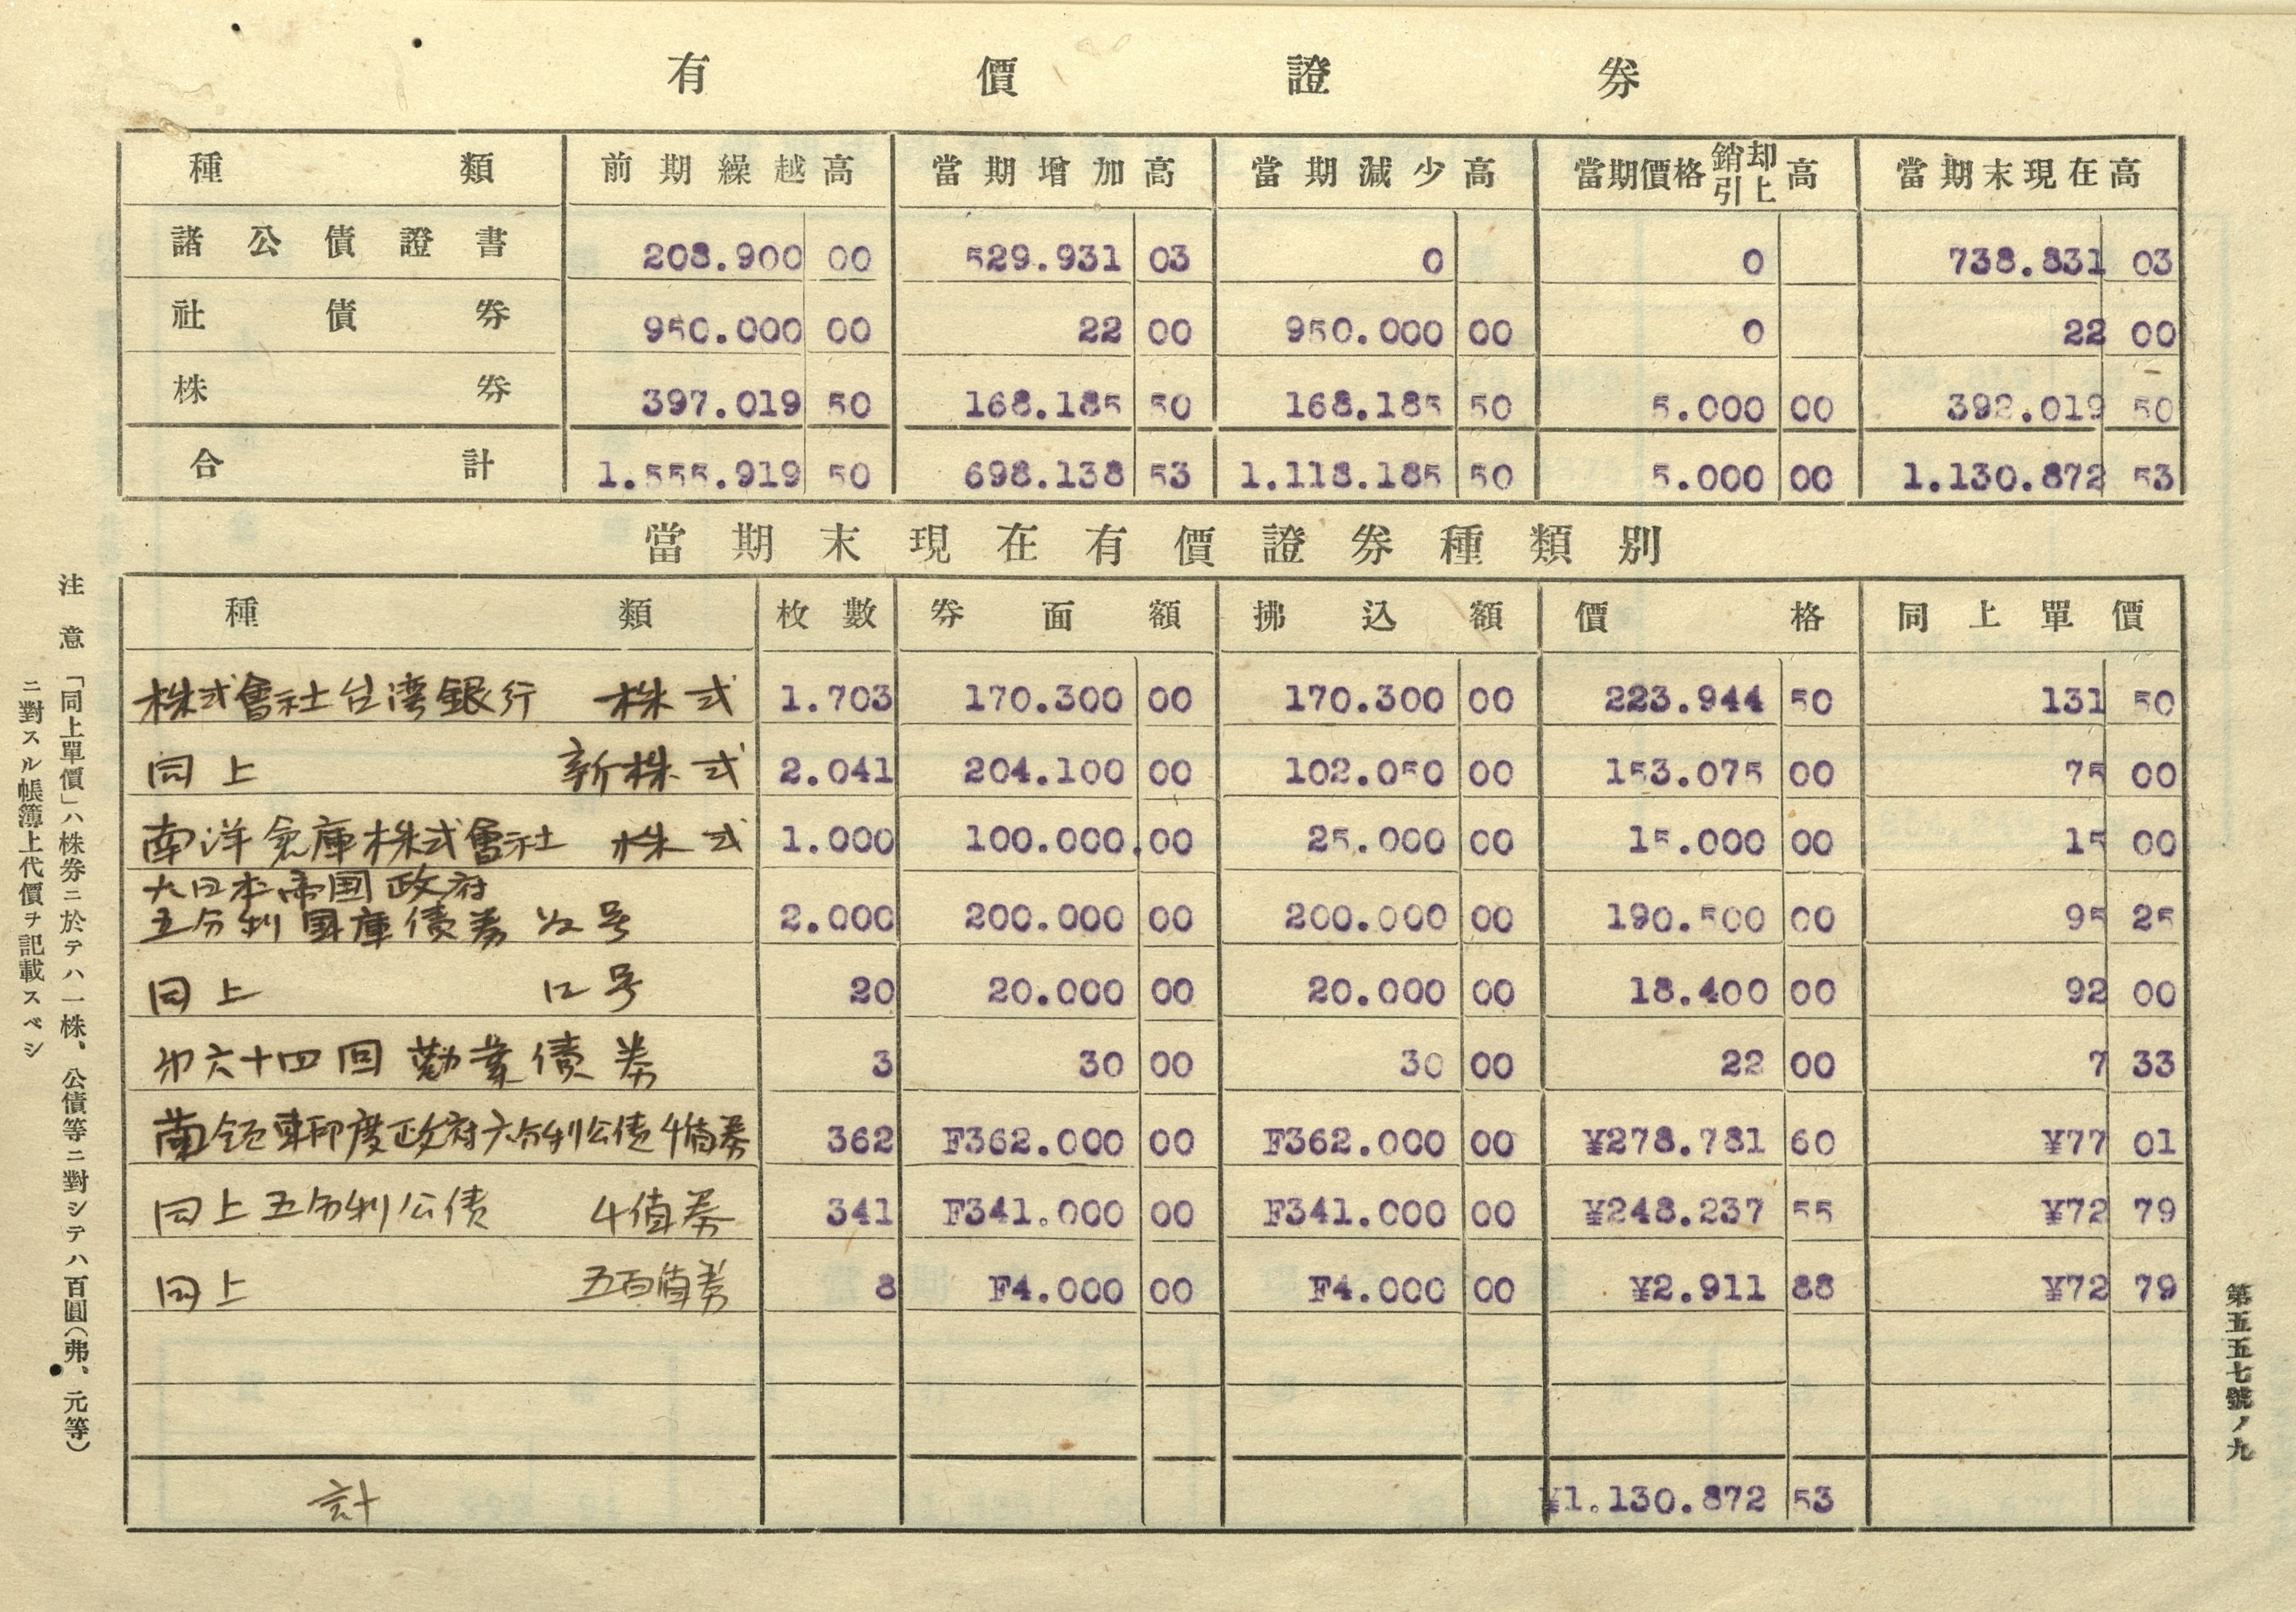 有價證券
種類 前期繰越高 當期增加高 當期減少高 當期價格銷却引上高 當期末現在高
諸公債證書 208.900 00 529.931 03 0 0 738.831 03
社債券 950.000 00 22 00 950.000 00 0 22 00
株券 397.019 50 168.185 50 168.185 50 5.000 00 392.019 50
合計 1.555.919 50 698.138 53 1.118.185 50 5.000 00 1.130.872 53
當期末現在有價證券種類別
種類 枚數 券面額 拂込額 價格 同上單價
株式會社台湾銀行 株式 1.703 170.300 00 170.300 00 223.944 50 131 50
同上 新株式 2.041 204.100 00 102.050 00 153.075 00 75 00
南洋倉庫株式會社 株式 1.000 100.000.00 25.000 00 15.000 00 15 00
大日本帝国政府
五分利国庫債券 号 2.000 200.000 00 200.000 00 190.500 00 95 25
同上 号 20 20.000 00 20.000 00 18.400 00 92 00
第六十四回勧業債券 3 30 00 30 00 22 00 7 33
蘭領東印度政府六分利公債 券 362 F362.000 00 F362.000 00 ¥278.781 60 ¥77 01
同上五分利公債 券 341 F341.000 00 F341.000 00 ¥248.237 55 ¥72 79
同上 五百 券 8 F4.000 00 F4.000 00 ¥2.911 88 ¥72 79
計 ¥1.130.872 53
注意「同上單價」ハ株券ニ於テハ一株、公債等ニ對シテハ百圓(弗、元等)
ニ對スル帳簿上代價ヲ記載スベシ
第五五七號ノ九